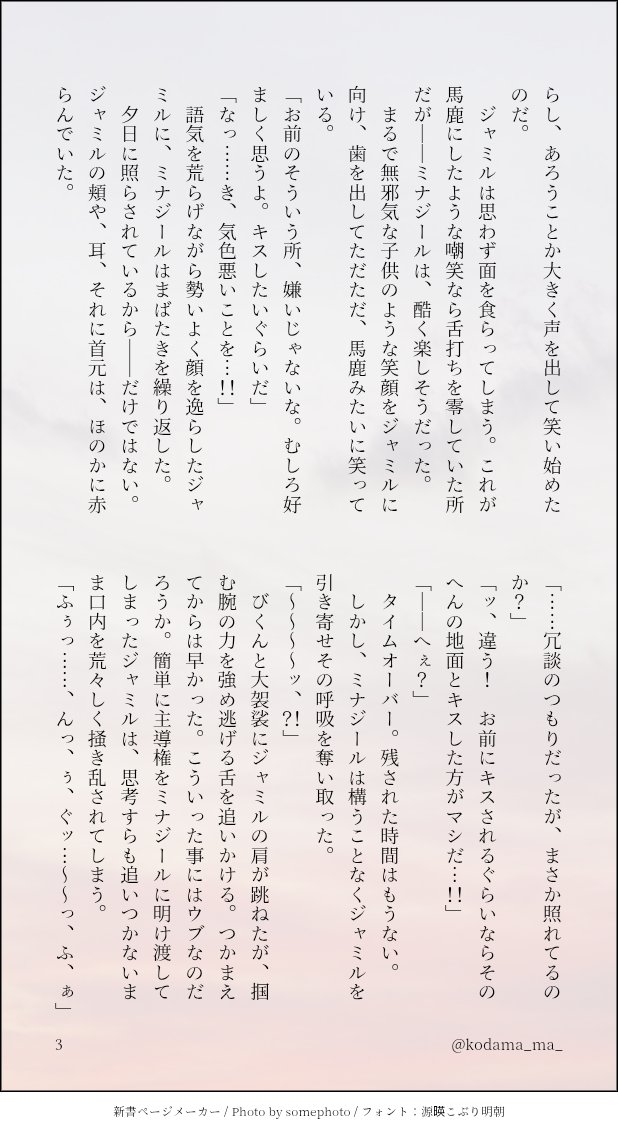 らし、あろうことか大きく声を出して笑い始めた
のだ。
　ジャミルは思わず面を食らってしまう。これが
馬鹿にしたような嘲笑なら舌打ちを零していた所
だが――ミナジールは、酷く楽しそうだった。
　まるで無邪気な子供のような笑顔をジャミルに
向け、歯を出してただただ、馬鹿みたいに笑って
いる。
「お前のそういう所、嫌いじゃないな。むしろ好
ましく思うよ。キスしたいぐらいだ」
「なっ……き、気色悪いことを…!!」
　語気を荒らげながら勢いよく顔を逸らしたジャ
ミルに、ミナジールはまばたきを繰り返した。
　夕日に照らされているから――だけではない。
ジャミルの頬や、耳、それに首元は、ほのかに赤
らんでいた。
「……冗談のつもりだったが、まさか照れてるの
か？」
「ッ、違う！　お前にキスされるぐらいならその
へんの地面とキスした方がマシだ…!!」
「――へぇ？」
　タイムオーバー。残された時間はもうない。
　しかし、ミナジールは構うことなくジャミルを
引き寄せその呼吸を奪い取った。
「〜〜〜〜ッ、?!」
　びくんと大袈裟にジャミルの肩が跳ねたが、掴
む腕の力を強め逃げる舌を追いかける。つかまえ
てからは早かった。こういった事にはウブなのだ
ろうか。簡単に主導権をミナジールに明け渡して
しまったジャミルは、思考すらも追いつかないま
ま口内を荒々しく掻き乱されてしまう。
「ふぅっ……、んっ、ぅ、ぐッ…〜〜っ、ふ、ぁ」
3
@kodama_ma_
新書ページメーカー / Photo by somephoto / フォント：源暎こぶり明朝